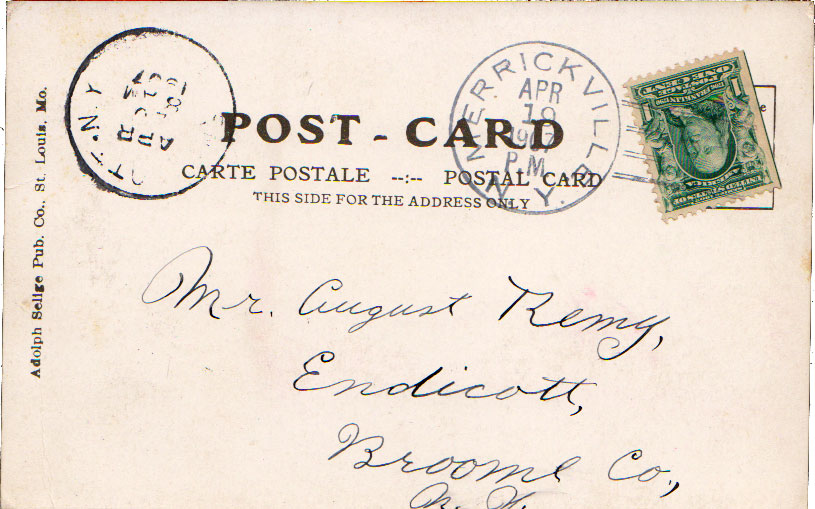 MERRICKVILLE N.Y.
APR
19
1907
P.M.
N.Y.
APR
1907
POST-CARD
CARTE POSTALE --:-- POSTAL CARD
THIS SIDE FOR THE ADDRESS ONLY
Adolph Selige Pub. Co., St. Louis, Mo.
ONE CENT
1 1
Mr. August Remy,
Endicott,
Broome Co.,
N.Y.